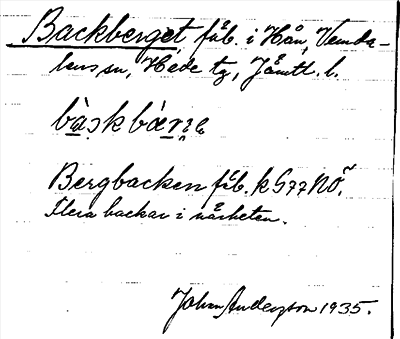 Backberget fäb. i Hån, Vemda-
lens sn, Hede tg, Jämtl. l.
Bergbacken fäb. k G77NÖ.
Flera backar i närheten.
Johan Anderzon 1935.